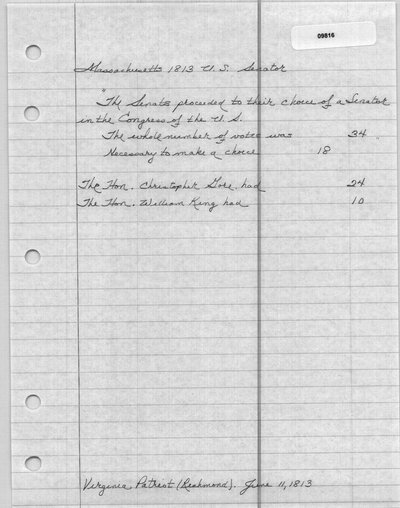 09816
Massachusetts 1813 U.S. Senator
"The Senate proceeded to their choice of a Senator
in the Congress of the U.S.
The whole number of votes was 34
Necessary to make a choice 18
The Hon. Christopher Gore had 24
The Hon. William King had 10
Virginia Patriot (Richmond). June 11, 1813